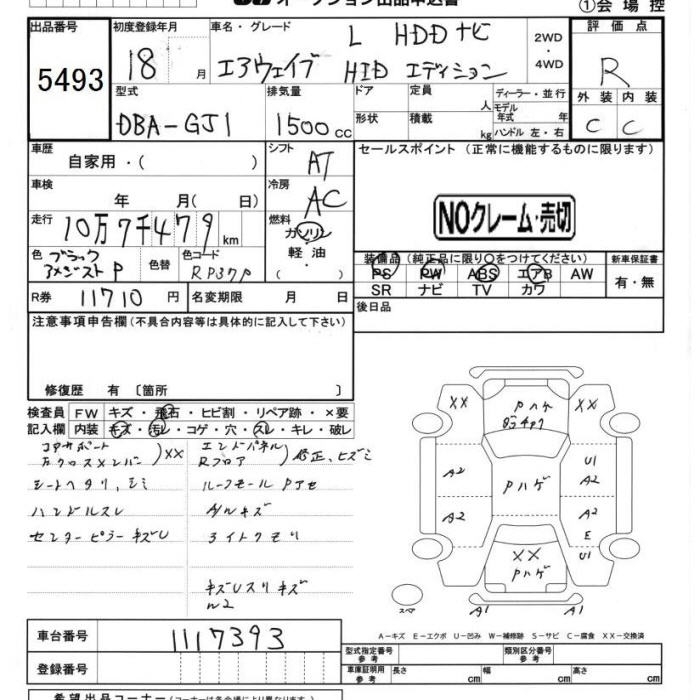 オークション出品申込書
①会場控
出品番号 初度登録年月 車名・グレード L HDDナビ 2WD・4WD 評価点
5493 18 月 エアウェイブ HIDエディション R
型式 排気量 ドア 定員 人 ディーラー・並行 外装 内装
DBA-GJ1 1500cc 形状 積載 kg モデル年式 年 ハンドル 左・右 C C
車歴 自家用・( ) シフト AT セールスポイント (正常に機能するものに限ります)
車検 年 月( 日) 冷房 AC
NOクレーム・売切
走行 10万7千479km 燃料 ガソリン・軽油・( )
色 ブラックアメジストP 色替 色コード RP37P
装備品 (純正品に限り○をつけてください) 新車保証書
PS PW ABS エアB AW 有・無
SR ナビ TV カワ
R券 11710円 名変期限 月 日 後日品
注意事項申告欄(不具合内容等は具体的に記入して下さい)
修復歴 有 〔箇所 〕
検査員 FW キズ・飛石・ヒビ割・リペア跡・×要
記入欄 内装 キズ・汚レ・コゲ・穴・スレ・キレ・破レ
コアサポート エンドパネル
左クロスメンバー )XX Rフロア )修正、ヒズミ
シートヘタリ、シミ ルーフモール
ハンドルスレ A/Wキズ
センターピラーキズU ライトクモリ
XX Pハゲ XX
A2 U1
Pハゲ A2
A2 A1
E
XX
Pハゲ
スペア A1 A1
A-キズ E-エクボ U-凹み W-補修跡 S-サビ C-腐食 XX-交換済
車台番号 1117393
登録番号
型式指定番号 参考 類別区分番号 参考
車庫証明用 参考 長さ cm 幅 cm 高さ cm
希望出品コーナー(コーナーは各会場により異なります)